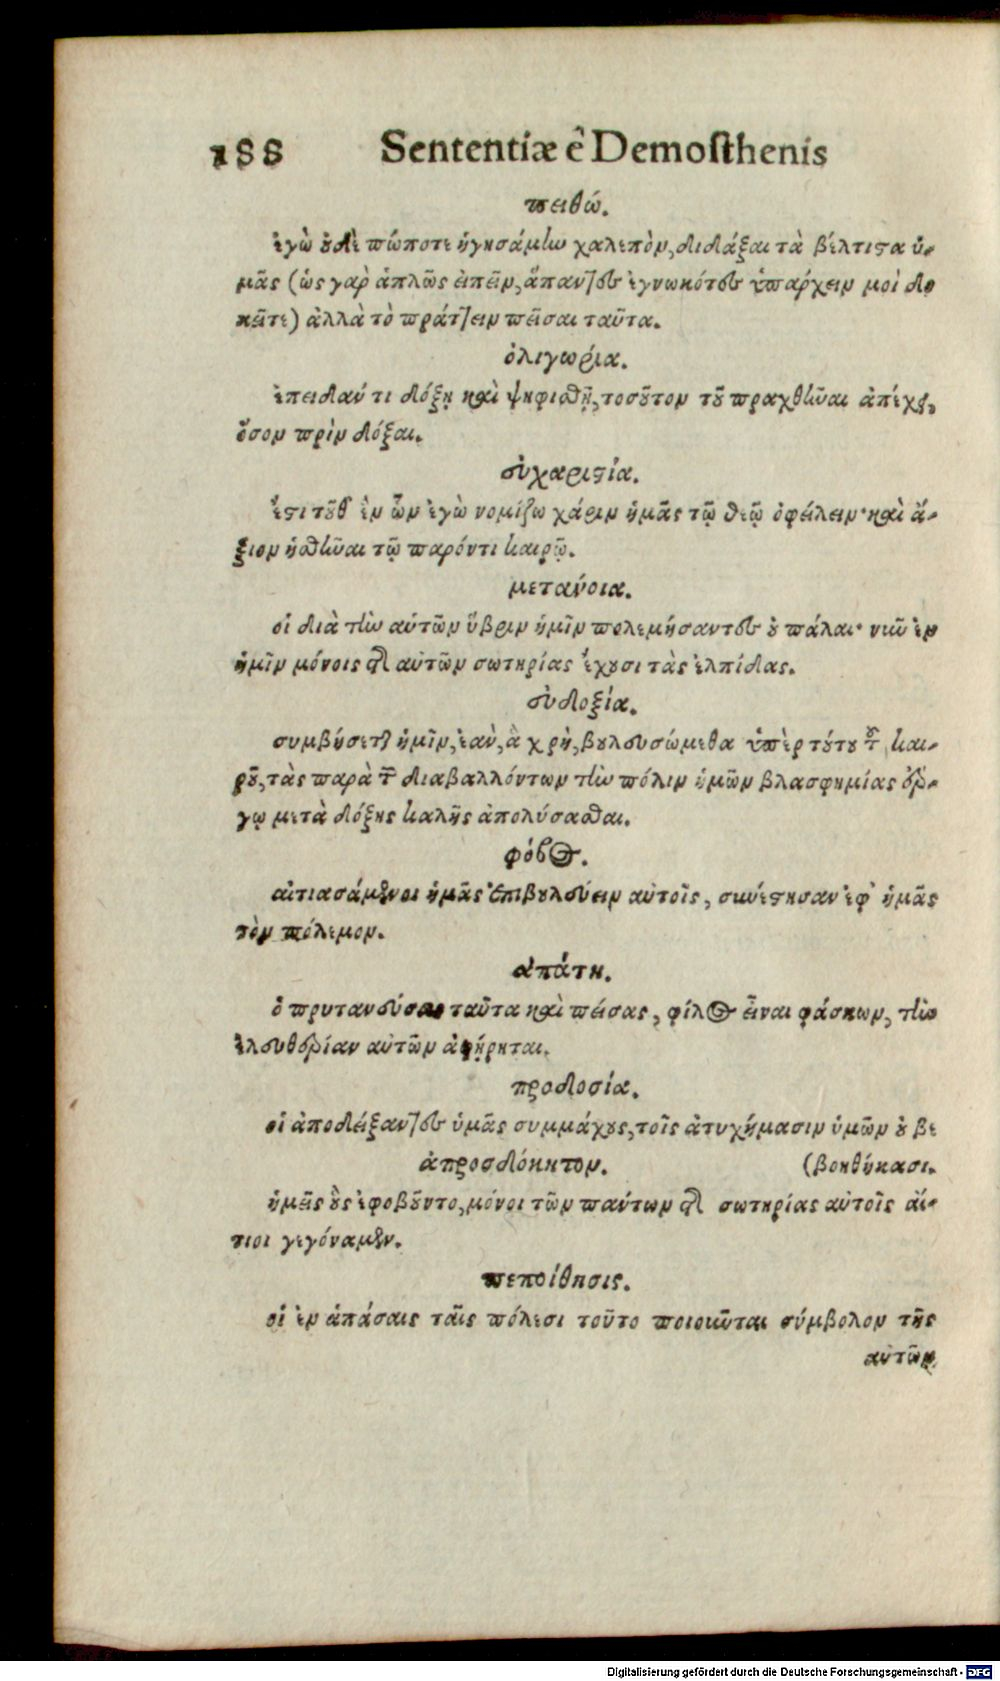 188 Sententiæ è Demosthenis
πειθώ.
ἐγὼ οὐδὲ πώποτε ἡγησάμην χαλεπὸν, διδάξαι τὰ βέλτιστα ὑ-
μᾶς (ὡς γὰρ ἁπλῶς εἰπεῖν, ἅπαντες ἐγνωκότες ὑπάρχειν μοὶ δο
κεῖτε) ἀλλὰ τὸ πράττειν πεῖσαι ταῦτα.
ὀλιγωρία.
ἐπειδαύ τι δόξῃ καὶ ψηφισθῇ, τοσοῦτον τοῦ πραχθῆναι ἀπέχει,
ὅσον πρὶν δόξαι.
εὐχαριστία.
ἔστι τοῦθ' ἐν ὧν ἐγὼ νομίζω χάριν ἡμᾶς τῷ θεῷ ὀφείλειν· καὶ ἄ-
ξιον ἡσθῆναι τῷ παρόντι καιρῷ.
μετανοια.
οἱ διὰ τὴν αὑτῶν ὕβριν ἡμῖν πολεμήσαντες οὐ πάλαι· νῦν ἐν
ἡμῖν μόνοις τῆς αὑτῶν σωτηρίας ἔχουσι τὰς ἐλπίδας.
εὐδοξία.
συμβήσεται ἡμῖν, ἐαν, ἃ χρὴ, βουλευσώμεθα ὑπὲρ τούτου τοῦ και-
ροῦ, τὰς παρὰ τῶν διαβαλλόντων τὴν πόλιν ἡμῶν βλασφημίας ἔρ-
γῳ μετὰ δόξης καλῆς ἀπολύσασθαι.
φόβος.
αἰτιασάμενοι ἡμᾶς ἐπιβουλεύειν αὐτοῖς, συνέστησαν ἐφ' ἡμᾶς
τὸν πόλεμον.
ἀπάτη.
ὁ πρυτανεύσας ταῦτα καὶ πείσας, φίλος εἶναι φάσκων, τὴν
ἐλευθερίαν αὐτῶν ἀφῄρηται.
προδοσία.
οἱ ἀποδείξαντες ὑμᾶς συμμάχους, τοῖς ἀτυχήμασιν ὑμῶν οὐ βε
ἀπροσδόκητον. (βοηθήκασι.
ἡμεῖς οὓς ἐφοβοῦντο, μόνοι τῶν πάντων τῆς σωτηρίας αὐτοῖς αἴ-
τιοι γεγόναμεν.
πεποίθησις.
οἱ ἐν ἁπάσαις ταῖς πόλεσι τοῦτο ποιοῦνται σύμβολον τῆς
αὑτῶν
Digitalisierung gefördert durch die Deutsche Forschungsgemeinschaft - DFG